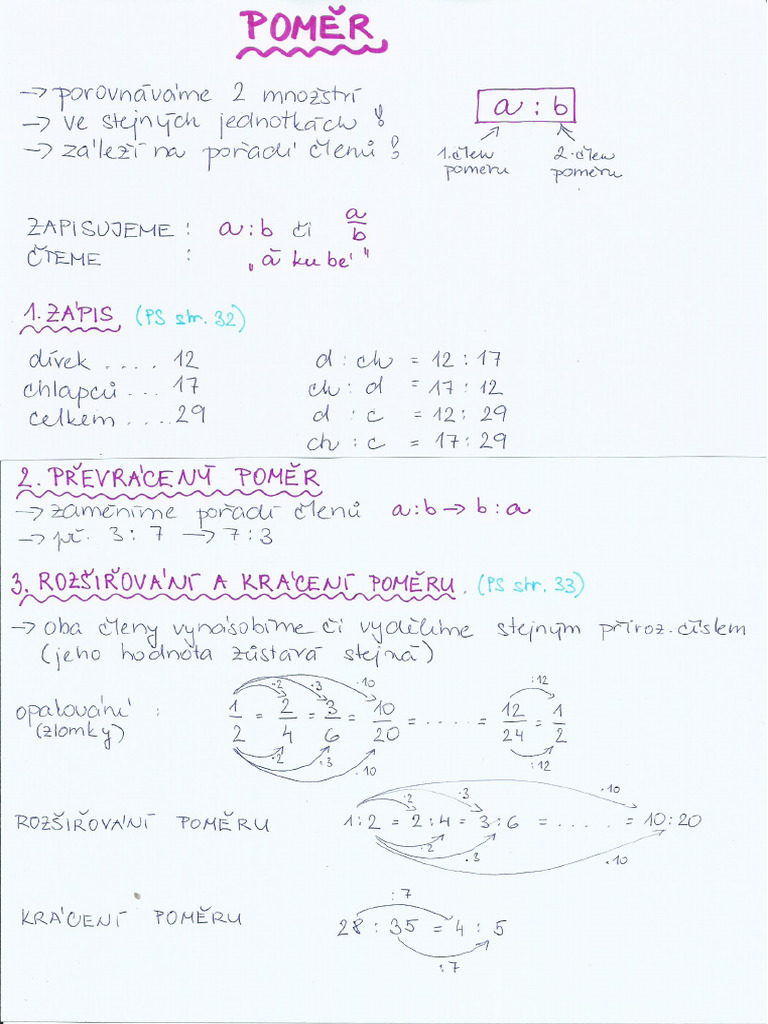 POMĚR
→ porovnáváme 2 množství
→ ve stejných jednotkách !
→ záleží na pořadí členů !
a : b
1. člen poměru
2. člen poměru
ZAPISUJEME : a : b či a/b
ČTEME : „á ku bé"
1. ZÁPIS (PS str. 32)
dívek .... 12
chlapců ... 17
celkem .... 29
d : ch = 12 : 17
ch : d = 17 : 12
d : c = 12 : 29
ch : c = 17 : 29
2. PŘEVRÁCENÝ POMĚR
→ zaměníme pořadí členů a : b → b : a
→ př. 3 : 7 → 7 : 3
3. ROZŠIŘOVÁNÍ A KRÁCENÍ POMĚRU. (PS str. 33)
→ oba členy vynásobíme či vydělíme stejným přiroz. číslem
(jeho hodnota zůstává stejná)
·2 ·3 ·10 :12
opakování : 1/2 = 2/4 = 3/6 = 10/20 = ..... = 12/24 = 1/2
(zlomky)
·2 ·3 ·10 :12
·2 ·3 ·10
ROZŠIŘOVÁNÍ POMĚRU 1 : 2 = 2 : 4 = 3 : 6 = ..... = 10 : 20
·2 ·3 ·10
:7
KRÁCENÍ POMĚRU 28 : 35 = 4 : 5
:7